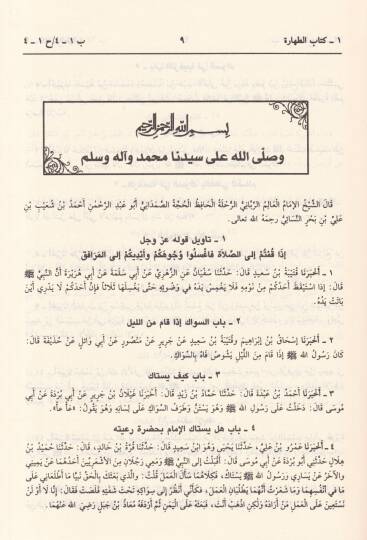 ١ ـ كتاب الطهارة ٩ ب ١ ـ ٤/ح ١ ـ ٤
بسم الله الرحمن الرحيم
وصلّى الله على سيدنا محمد وآله وسلم
قَالَ الشَّيْخُ الإِمَامُ الْعَالِمُ الرَّبَّانِيُّ الرُّحْلَةُ الْحَافِظُ الْحُجَّةُ الصَّمَدَانِيُّ أَبُو عَبْدِ الرَّحْمٰنِ أَحْمَدُ بْنُ شُعَيْبِ بْنِ
عَلِيِّ بْنِ بَحْرٍ النَّسَائِيُّ رحمه الله تعالى:
١ ـ تأويل قوله عز وجل
إِذَا قُمْتُمْ إِلَى الصَّلاَةِ فَاغْسِلُوا وُجُوهَكُمْ وَأَيْدِيَكُمْ إِلَى الْمَرَافِقِ
١ ـ أَخْبَرَنَا قُتَيْبَةُ بْنُ سَعِيدٍ قَالَ: حَدَّثَنَا سُفْيَانُ عَنِ الزُّهْرِيِّ عَنْ أَبِي سَلَمَةَ عَنْ أَبِي هُرَيْرَةَ أَنَّ النَّبِيَّ ﷺ
قَالَ: إِذَا اسْتَيْقَظَ أَحَدُكُمْ مِنْ نَوْمِهِ فَلاَ يَغْمِسْ يَدَهُ فِي وَضُوئِهِ حَتَّى يَغْسِلَهَا ثَلاَثًا فَإِنَّ أَحَدَكُمْ لاَ يَدْرِي أَيْنَ
بَاتَتْ يَدُهُ.
٢ ـ باب السواك إذا قام من الليل
٢ ـ أَخْبَرَنَا إِسْحَاقُ بْنُ إِبْرَاهِيمَ وَقُتَيْبَةُ بْنُ سَعِيدٍ عَنْ جَرِيرٍ عَنْ مَنْصُورٍ عَنْ أَبِي وَائِلٍ عَنْ حُذَيْفَةَ قَالَ:
كَانَ رَسُولُ الله ﷺ إِذَا قَامَ مِنَ اللَّيْلِ يَشُوصُ فَاهُ بِالسِّوَاكِ.
٣ ـ باب كيف يستاك
٣ ـ أَخْبَرَنَا أَحْمَدُ بْنُ عَبْدَةَ قَالَ: حَدَّثَنَا حَمَّادُ بْنُ زَيْدٍ قَالَ: أَخْبَرَنَا غَيْلاَنُ بْنُ جَرِيرٍ عَنْ أَبِي بُرْدَةَ عَنْ أَبِي
مُوسَى قَالَ: دَخَلْتُ عَلَى رَسُولِ الله ﷺ وَهُوَ يَسْتَنُّ وَطَرَفُ السِّوَاكِ عَلَى لِسَانِهِ وَهُوَ يَقُولُ: «عَأْ عَأْ».
٤ ـ باب هل يستاك الإمام بحضرة رعيته
٤ ـ أَخْبَرَنَا عَمْرُو بْنُ عَلِيٍّ، حَدَّثَنَا يَحْيَى وَهُوَ ابْنُ سَعِيدٍ قَالَ: حَدَّثَنَا قُرَّةُ بْنُ خَالِدٍ، قَالَ: حَدَّثَنَا حُمَيْدُ بْنُ
هِلاَلٍ حَدَّثَنِي أَبُو بُرْدَةَ عَنْ أَبِي مُوسَى قَالَ: أَقْبَلْتُ إِلَى النَّبِيِّ ﷺ وَمَعِي رَجُلاَنِ مِنَ الأَشْعَرِيِّينَ أَحَدُهُمَا عَنْ يَمِينِي
وَالآخَرُ عَنْ يَسَارِي وَرَسُولُ الله ﷺ يَسْتَاكُ، فَكِلاَهُمَا سَأَلَ الْعَمَلَ قُلْتُ: وَالَّذِي بَعَثَكَ بِالْحَقِّ نَبِيًّا مَا أَطْلَعَانِي عَلَى
مَا فِي أَنْفُسِهِمَا وَمَا شَعَرْتُ أَنَّهُمَا يَطْلُبَانِ الْعَمَلَ، فَكَأَنِّي أَنْظُرُ إِلَى سِوَاكِهِ تَحْتَ شَفَتِهِ قَلَصَتْ فَقَالَ: إِنَّا لاَ أَوْ لَنْ
نَسْتَعِينَ عَلَى الْعَمَلِ مَنْ أَرَادَهُ وَلَكِنِ اذْهَبْ أَنْتَ، فَبَعَثَهُ عَلَى الْيَمَنِ ثُمَّ أَرْدَفَهُ مُعَاذُ بْنُ جَبَلٍ رَضِيَ الله عَنْهُمَا.